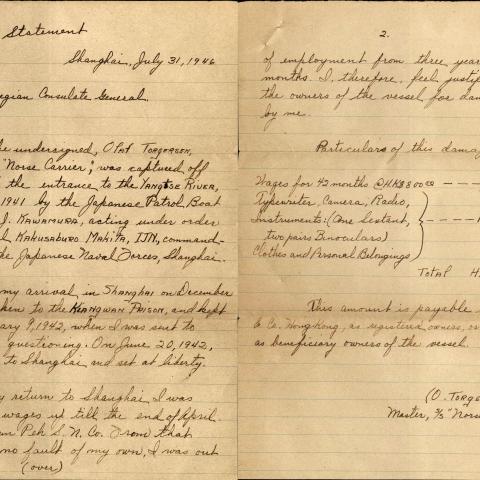 Statement
Shanghai, July 31, 1946
egian Consulate General.
he undersigned, Olaf Torgersen,
"Norse Carrier", was captured off
the entrance to the Yangtse River,
1941 by the Japanese Patrol Boat
J. Kawamura, acting under order
Kakusaburo Makita, IJN, command-
he Japanese Naval Forces, Shanghai.
my arrival in Shanghai on December
ken to the Kiangwan Prison, and kept
ary 9, 1942, when I was sent to
questioning. On June 20, 1942,
to Shanghai and set at liberty.
y return to Shanghai, I was
wages up till the end of April
Peh S. N. Co. From that
no fault of my own, I was out
(over)
2.
of employment from three year
months. I, therefore, feel justif
the owners of the vessel for dam
by me.
Particulars of this dama
Wages for 42 months @HK$800
Typewriter, Camera, Radio,
Instruments: (One Sextant,
two pairs Binoculars)
Clothes and Personal Belongings
Total H.
This amount is payable
& Co. Hongkong, as registered owners, or
as beneficiary owners of the vessel.
(O. Torge
Master, S/S "Nors